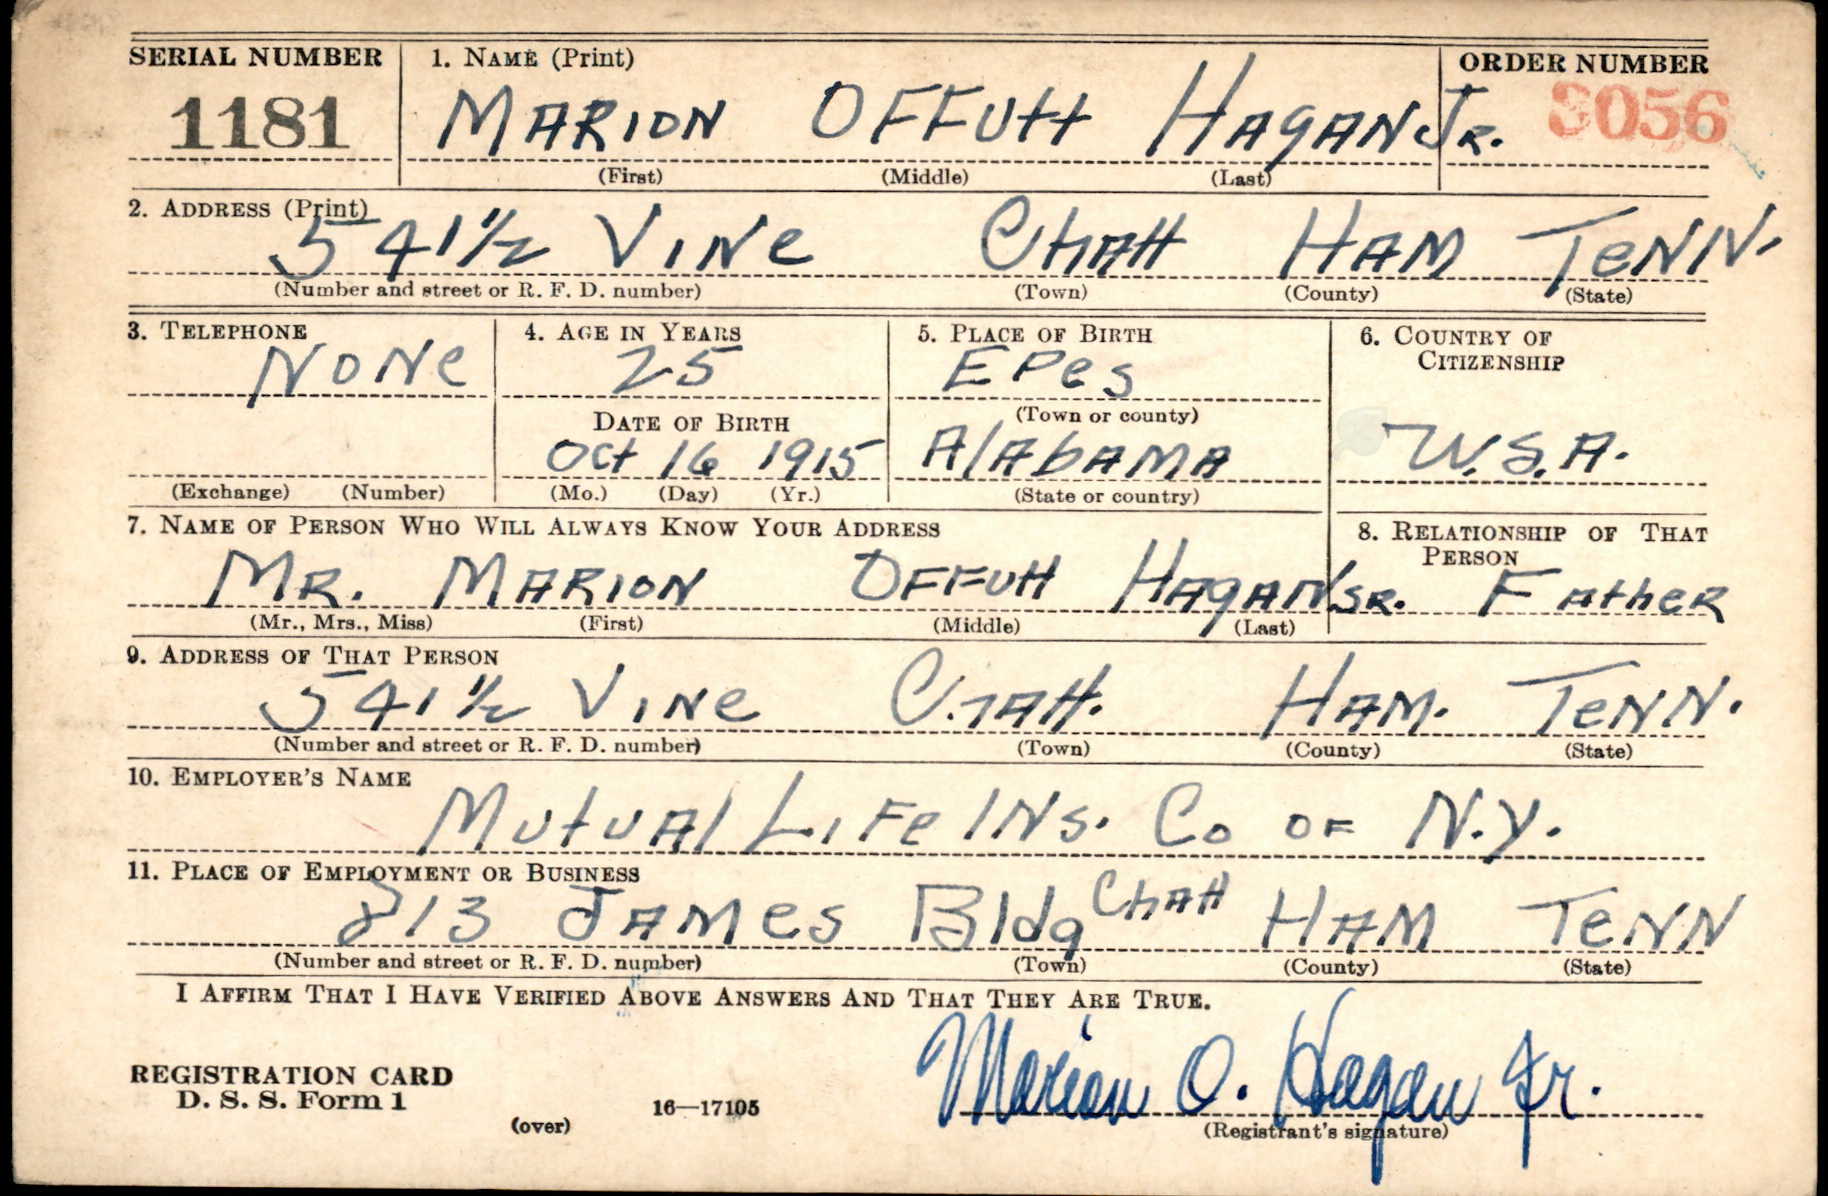 SERIAL NUMBER 1. NAME (Print) ORDER NUMBER
1181 MARION OFFUTT HAGAN JR. 3056
(First) (Middle) (Last)
2. ADDRESS (Print)
541 1/2 VINE CHATT HAM TENN.
(Number and street or R. F. D. number) (Town) (County) (State)
3. TELEPHONE 4. AGE IN YEARS 5. PLACE OF BIRTH 6. COUNTRY OF CITIZENSHIP
NONE 25 EPES
DATE OF BIRTH (Town or county)
Oct 16 1915 ALABAMA U.S.A.
(Exchange) (Number) (Mo.) (Day) (Yr.) (State or country)
7. NAME OF PERSON WHO WILL ALWAYS KNOW YOUR ADDRESS 8. RELATIONSHIP OF THAT PERSON
MR. MARION OFFUTT HAGAN SR. FATHER
(Mr., Mrs., Miss) (First) (Middle) (Last)
9. ADDRESS OF THAT PERSON
541 1/2 VINE CHATT. HAM. TENN.
(Number and street or R. F. D. number) (Town) (County) (State)
10. EMPLOYER'S NAME
MUTUAL LIFE INS. Co OF N.Y.
11. PLACE OF EMPLOYMENT OR BUSINESS
813 JAMES Bldg CHATT HAM TENN
(Number and street or R. F. D. number) (Town) (County) (State)
I AFFIRM THAT I HAVE VERIFIED ABOVE ANSWERS AND THAT THEY ARE TRUE.
Marion O. Hagan Jr.
REGISTRATION CARD
D. S. S. Form 1
(over) 16—17105 (Registrant's signature)